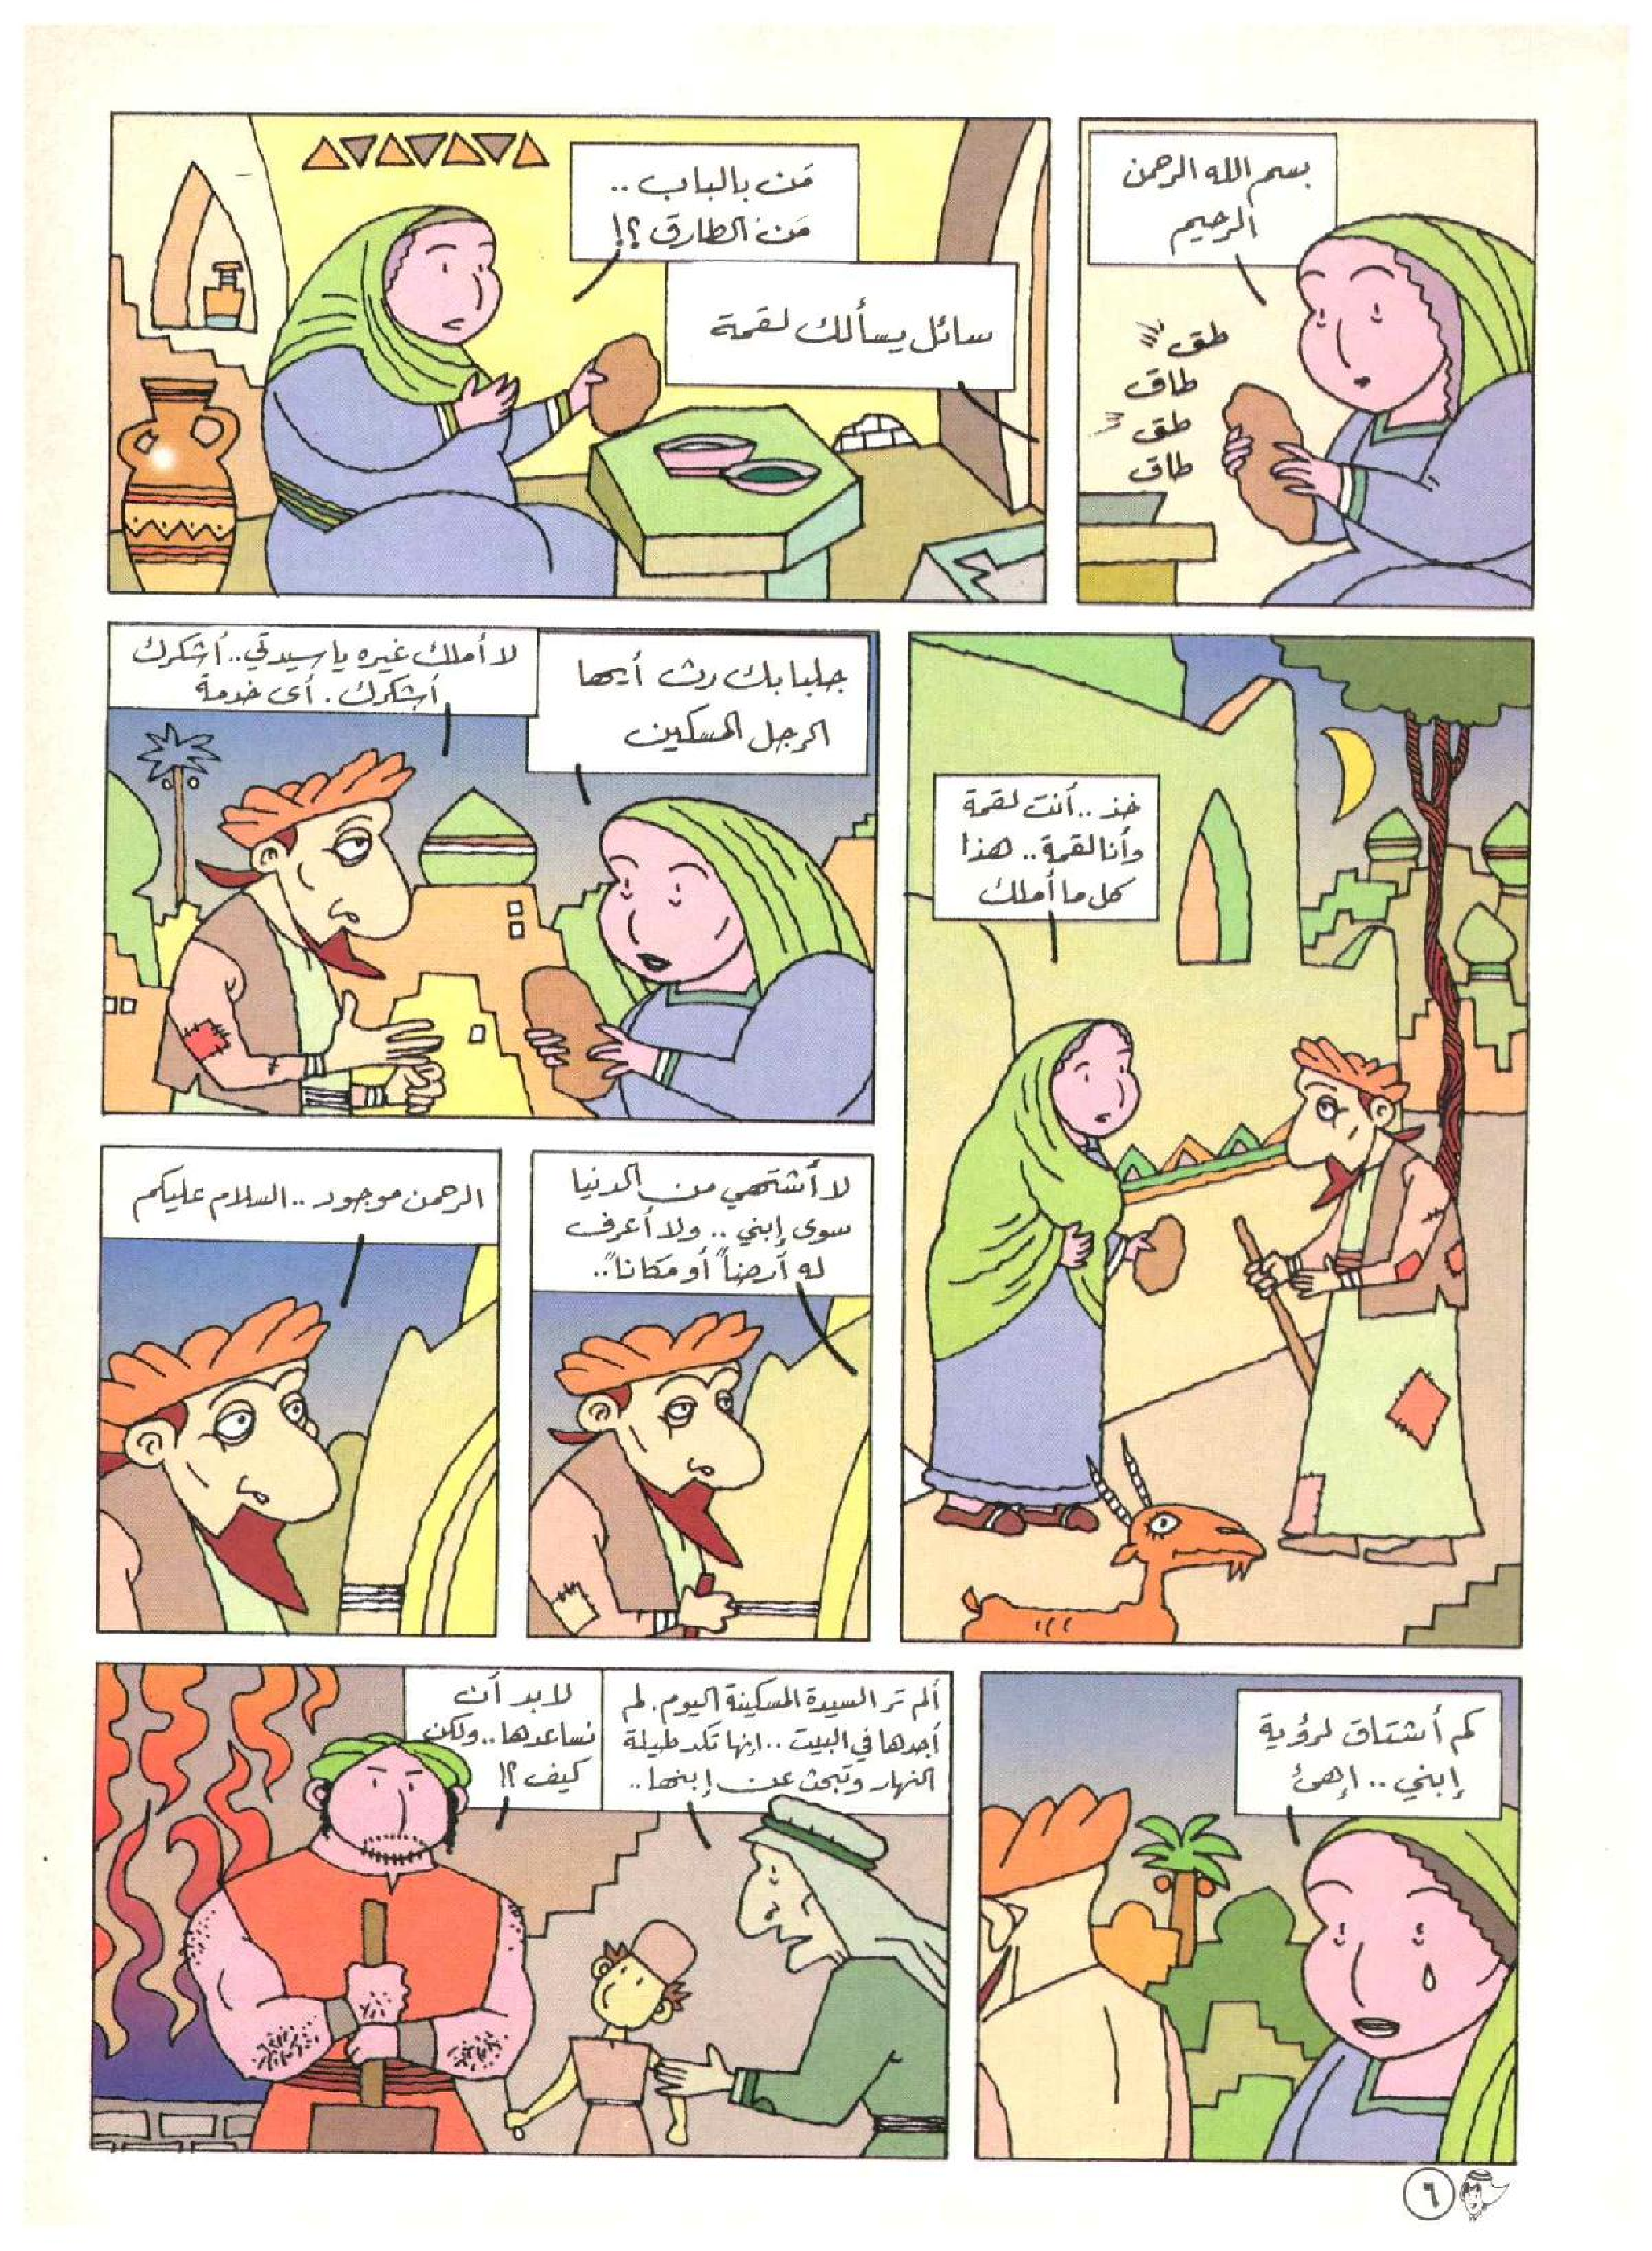 بسم الله الرحمن
الرحيم
طق
طاق
طق
طاق
مَن بالباب ..
مَن الطارق ؟!
سائل يسألك لقمة
خذ .. أنت لقمة
وأنا لقمة .. هذا
كل ما أملك
جلبابك رث أيها
الرجل المسكين
لا أملك غيره يا سيدتي .. أشكرك
أشكرك . أى خدمة
لا أشتهي من الدنيا
سوى إبني .. ولا أعرف
له أرضاً أو مكاناً ..
الرحمن موجود .. السلام عليكم
كم أشتاق لرؤية
إبني .. إهئ
ألم تر السيدة المسكينة اليوم . لم
أجدها في البيت .. إنها تكد طيلة
النهار وتبحث عن إبنها ..
لا بد أن
نساعدها .. ولكن
كيف ؟!
٦